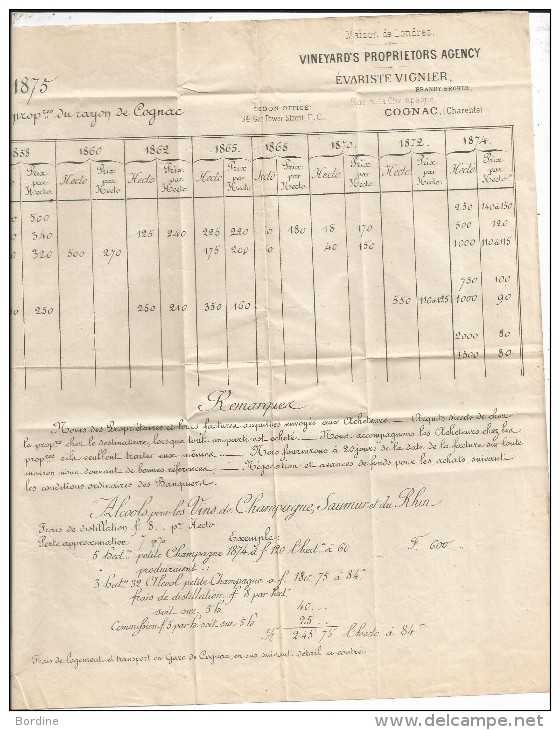 Maison de Londres
VINEYARD'S PROPRIETORS AGENCY
1875
ÉVARISTE VIGNIER,
BRANDY BROKER
Rue de la Champagne
prop.res du rayon de Cognac
LONDON OFFICE:
COGNAC, (Charente)
Tower Street, E. C.
1858 1860 1862 1865 1868 1870 1872 1874
Prix par Hecto Hecto Prix par Hecto Hecto Prix par Hecto Hecto Prix par Hecto Hecto Prix par Hecto Hecto Prix par Hecto Hecto Prix par Hecto Hecto Prix par Hecto
500 250 140 à 150
340 125 240 225 220 180 18 170 500 120
320 500 270 175 200 40 150 1000 110 à 115
750 100
250 250 210 350 160 550 110 à 125 1000 90
2000 80
1500 80
Remarques
Nous des Propriétaires et leurs factures acquittées envoyés aux Acheteurs. — Acquits directs de chez
le prop.re chez le destinataire, lorsque tout est acheté. — Nous accompagnons les Acheteurs chez les
prop.res veulent traiter eux mêmes. — Nous fournirons à 20 jours de la date de la facture sur toute
maison nous donnant de bonnes références. — Négociation et avances de fonds pour les achats suivant
les conditions ordinaires des Banquiers.
Alcools pour les Vins de Champagne, Saumur et du Rhin
Frais de distillation f. 8 .. pr Hecto
Perte approximative
Exemple:
5 hect. petite Champagne 1874 à f 120 l'hect. à 60 F. 600 "
produiraient :
3 hect. 32 Alcool petite Champagne à f. 180. 75 à 84°
frais de distillation f. 8 par hect.
soit sur 5 h 40 ..
Commission f. 5 par h. soit sur 5 h. 25
245 75 l'hecto à 84°
Frais de logement et transport en Gare de Cognac en sus suivant détail ci-contre.
Bordine
www.delcampe.net